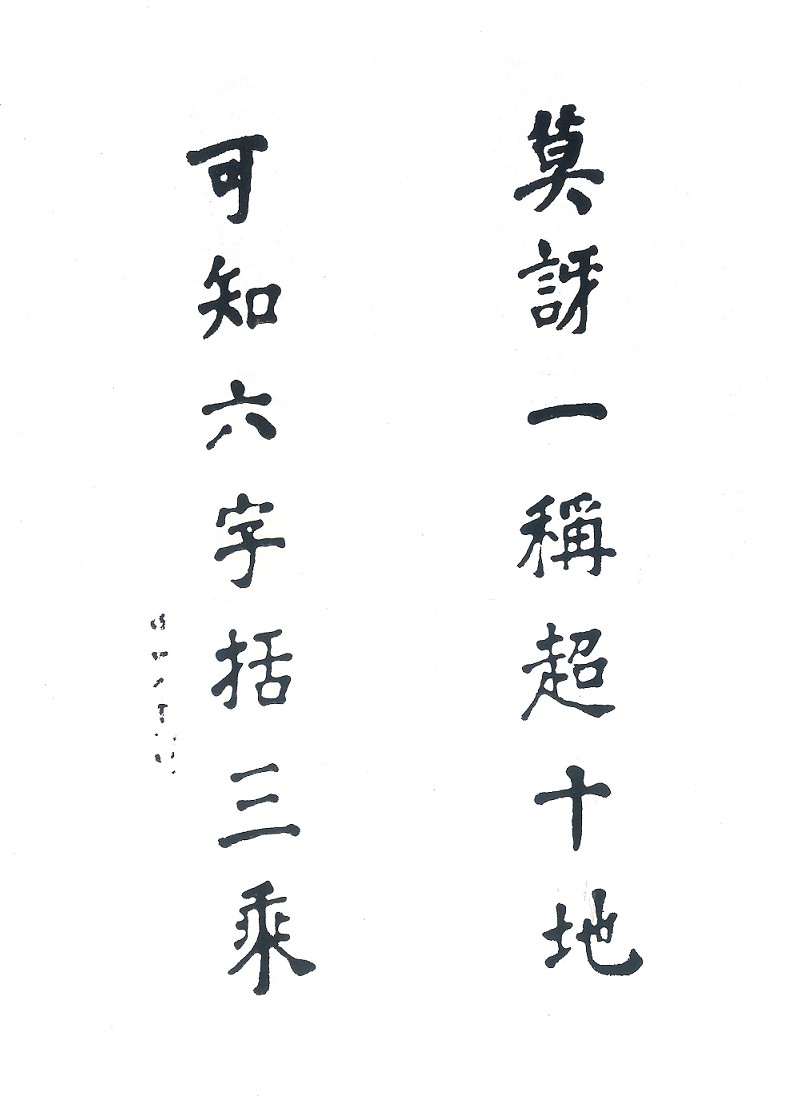 莫訝一稱超十地
可知六字括三乘